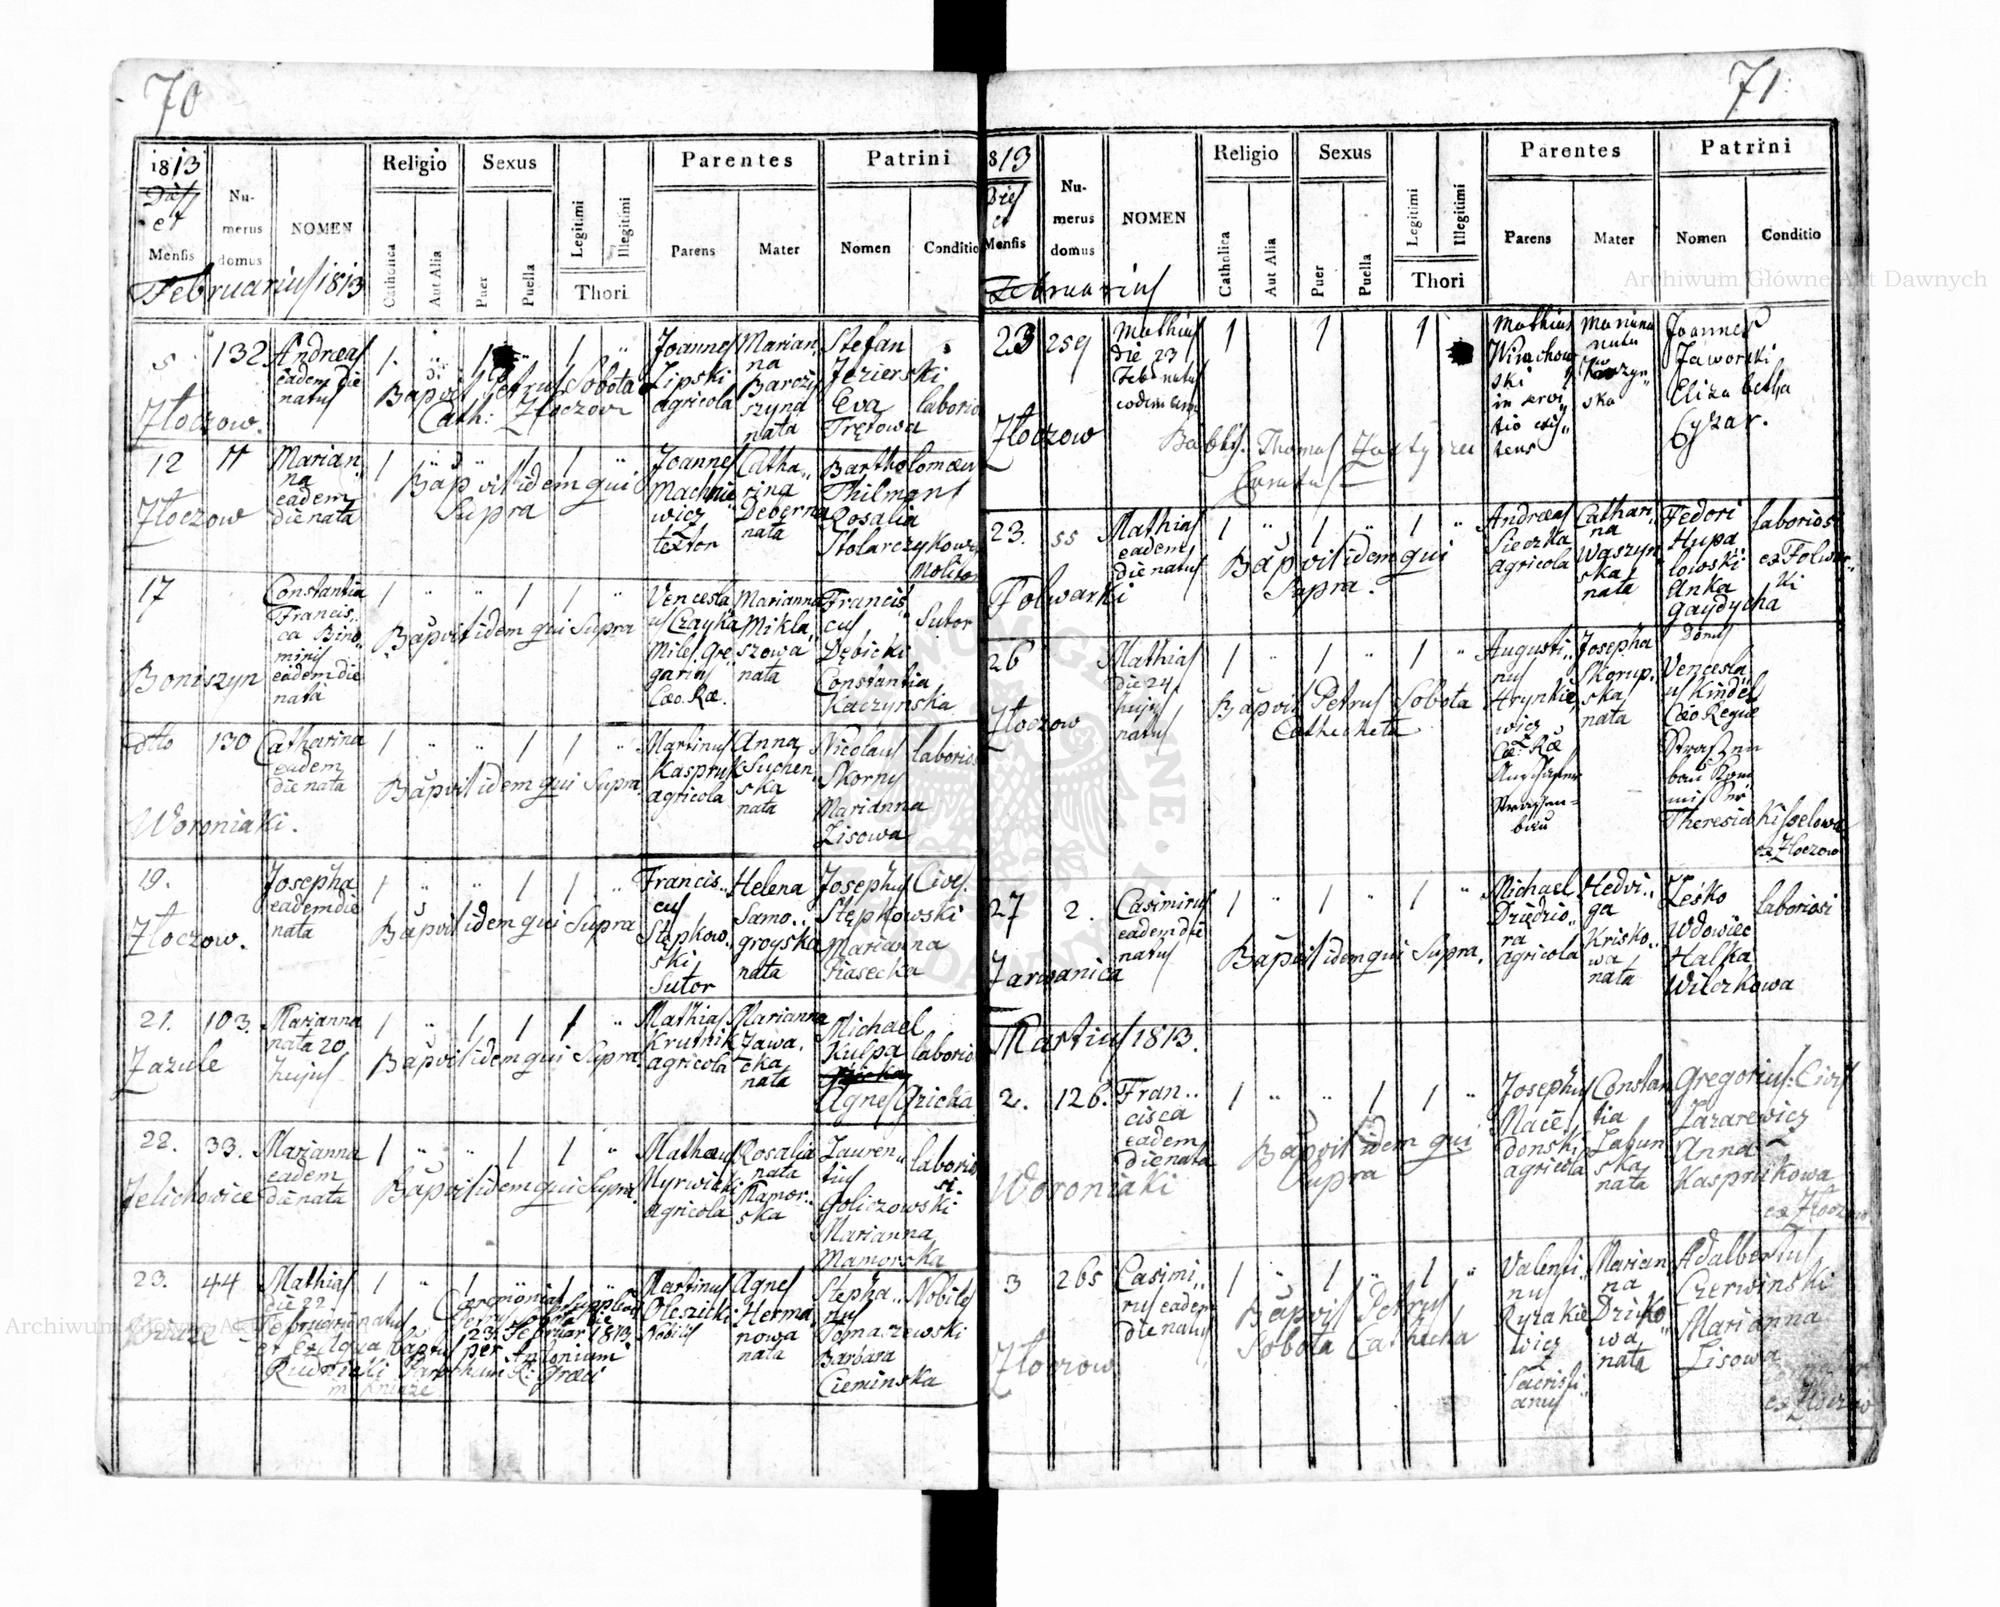 70
1813
Dies
et
Mensis
Numerus
domus
NOMEN
Religio
Catholica
Aut Alia
Sexus
Puer
Puella
Legitimi
Illegitimi
Thori
Parentes
Parens
Mater
Patrini
Nomen
Conditio
Februarius 1813
5
Złoczow.
132
Andreas
eadem die
natus
1.
1
1
Bapvit Petrus Sobota
Cath: Złoczow
Joannes
Lipski
agricola
Marian
na
Barczy
szyna
nata
Stefan
Jezierski
Eva
Trętowa
laborio
12
Złoczow
11
Marian
na
eadem
die nata
1
1
1
Bapvit idem qui
Supra
Joannes
Machnie
wicz
textor
Catha
rina
nata
Bartholomæus
Philmans
Rosalia
Stolarczykowa
Molitor
17
Boniszyn
Constantia
Francis
ca Bino
minis
eadem die
nata
1
1
1
Bapvit idem qui Supra
Vencesla
us Czayka
Miles Gre
garius
Cæo. Ræ.
Marianna
Mikla
szowa
nata
Francis
cus
Dębicki
Constantia
Kaczynska
Sutor
dtto
Woroniaki.
130
Catharina
eadem
die nata
1
1
1
Bapvit idem qui Supra
Martinus
Kaspruk
agricola
Anna
Suchen
ska
nata
Nicolaus
Skorny
Marianna
Lisowa
laborio
19.
Złoczow.
Josepha
eadem die
nata
1
1
1
Bapvit idem qui Supra
Francis
cus
Stępkow
ski
Sutor
Helena
Samo
groyska
nata
Josephus
Stępkowski
Marianna
Piasecka
Cives.
21.
Zazule
103.
Marianna
nata 20
hujus
1
1
1
1
Bapvit idem qui Supra
Mathias
Krutnik
agricola
Marianna
Zawa
cka
nata
Michael
Kulpa
Agnes Gricka
laborio
22.
Jelichovice
33.
Marianna
eadem
die nata
1
1
1
Bapvit idem qui Supra
Mathæus
Nyrwicki
agricola
Rosalia
nata
Mamor
ska
Lauren
tius
Goliczowski
Marianna
Mamorska
laborio
si
23.
44
Mathias
die 22
Februarii natus
et ex Aqua bapus per Antonium
Rudnicki Parochum R. Græci
in Kniaże
1
1
1
Ceremonias supplevit
Petrus Sobota die
23 Februar 1813
Martinus
Oleszitki
Nobilis
Agnes
Herma
nowa
nata
Stepha
nus
Tomaszewski
Barbara
Cieminska
Nobiles
71
1813
Dies
et
Mensis
Numerus
domus
NOMEN
Religio
Catholica
Aut Alia
Sexus
Puer
Puella
Legitimi
Illegitimi
Thori
Parentes
Parens
Mater
Patrini
Nomen
Conditio
Februarius
23
Złoczow
259
Mathias
die 23
Feb natus
eodem
1
1
1
Thomas
Mathias
ski
in servi
tio exis
tens
Marianna
nata
ska
Joannes
Jaworski
Elizabetha
Cyzar.
23.
Folwarki
55
Mathias
eadem
die natus
1
1
1
Bapvit idem qui
Supra.
Andreas
Sieczka
agricola
Cathari
na
Waszyn
ska
nata
Fedori
Hupa
lowski
Anka
Gaydycha
laboriosi
ex Folwar
ki
26
Złoczow
Mathias
die 24
hujus
natus
1
1
1
Bapvit Petrus Sobota
Catecheta
Augusti
nus
Hrynkie
wicz
Cæ: Ræ
Strassen=
bau
Josepha
Skorup
ska
nata
Domus
Vencesla
us Kindel
Cæo Regiæ
Theresia Kisselowa
ex Złoczow
27
Zarwanica
2.
Casimirus
eadem die
natus
1
1
1
Bapvit idem qui Supra.
Michael
Dziędzio
ra
agricola
Hedvi
ga
Krisko
wa
nata
Leśko
Wdowiec
Halka
Wilczkowa
laboriosi
Martius 1813.
2.
Woroniaki
126.
Fran
cisca
eadem
die nata
1
1
1
Bapvit idem qui
Supra
Josephus
Mace
donski
agricola
Constan
tia
Labun
ska
nata
Gregorius
Lazarewicz
Anna
Kasprukowa
Cives
ex Złoczow
3
Złoczow
265
Casimi
rus eadem
die natus
1
1
1
Bapvit Petrus
Sobota Catecheta
Valenti
nus
Ryzakie
wicz
Sacristi
anus
Marian
na
Dziko
wa
nata
Adalbertus
Czerwinski
Marianna
Lisowa
ex Złoczow
Archiwum Główne Akt Dawnych